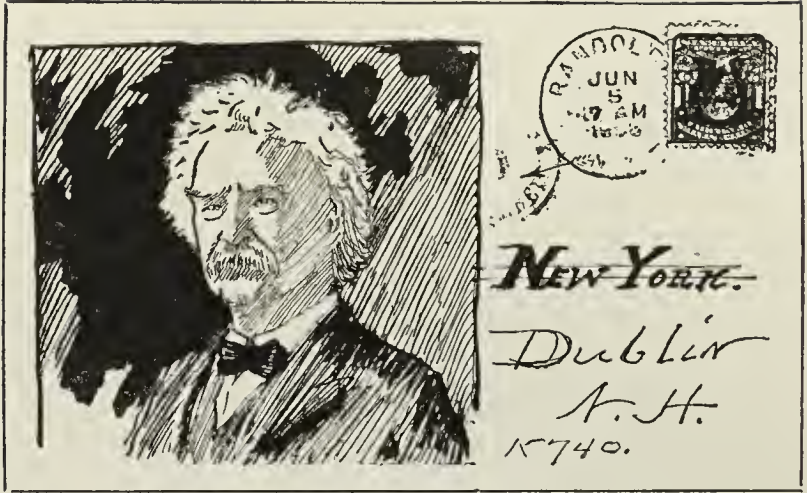 RANDOLP
JUN
5
7 AM
NEW YORK.
Dublin
N. H.
15740.